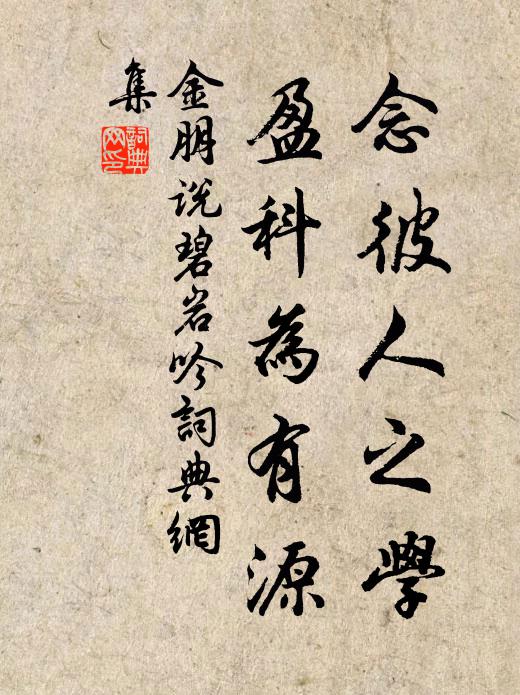 念彼人之學
盈科為有源
金朋说碧岩吟詞典網
集
詞典
网印